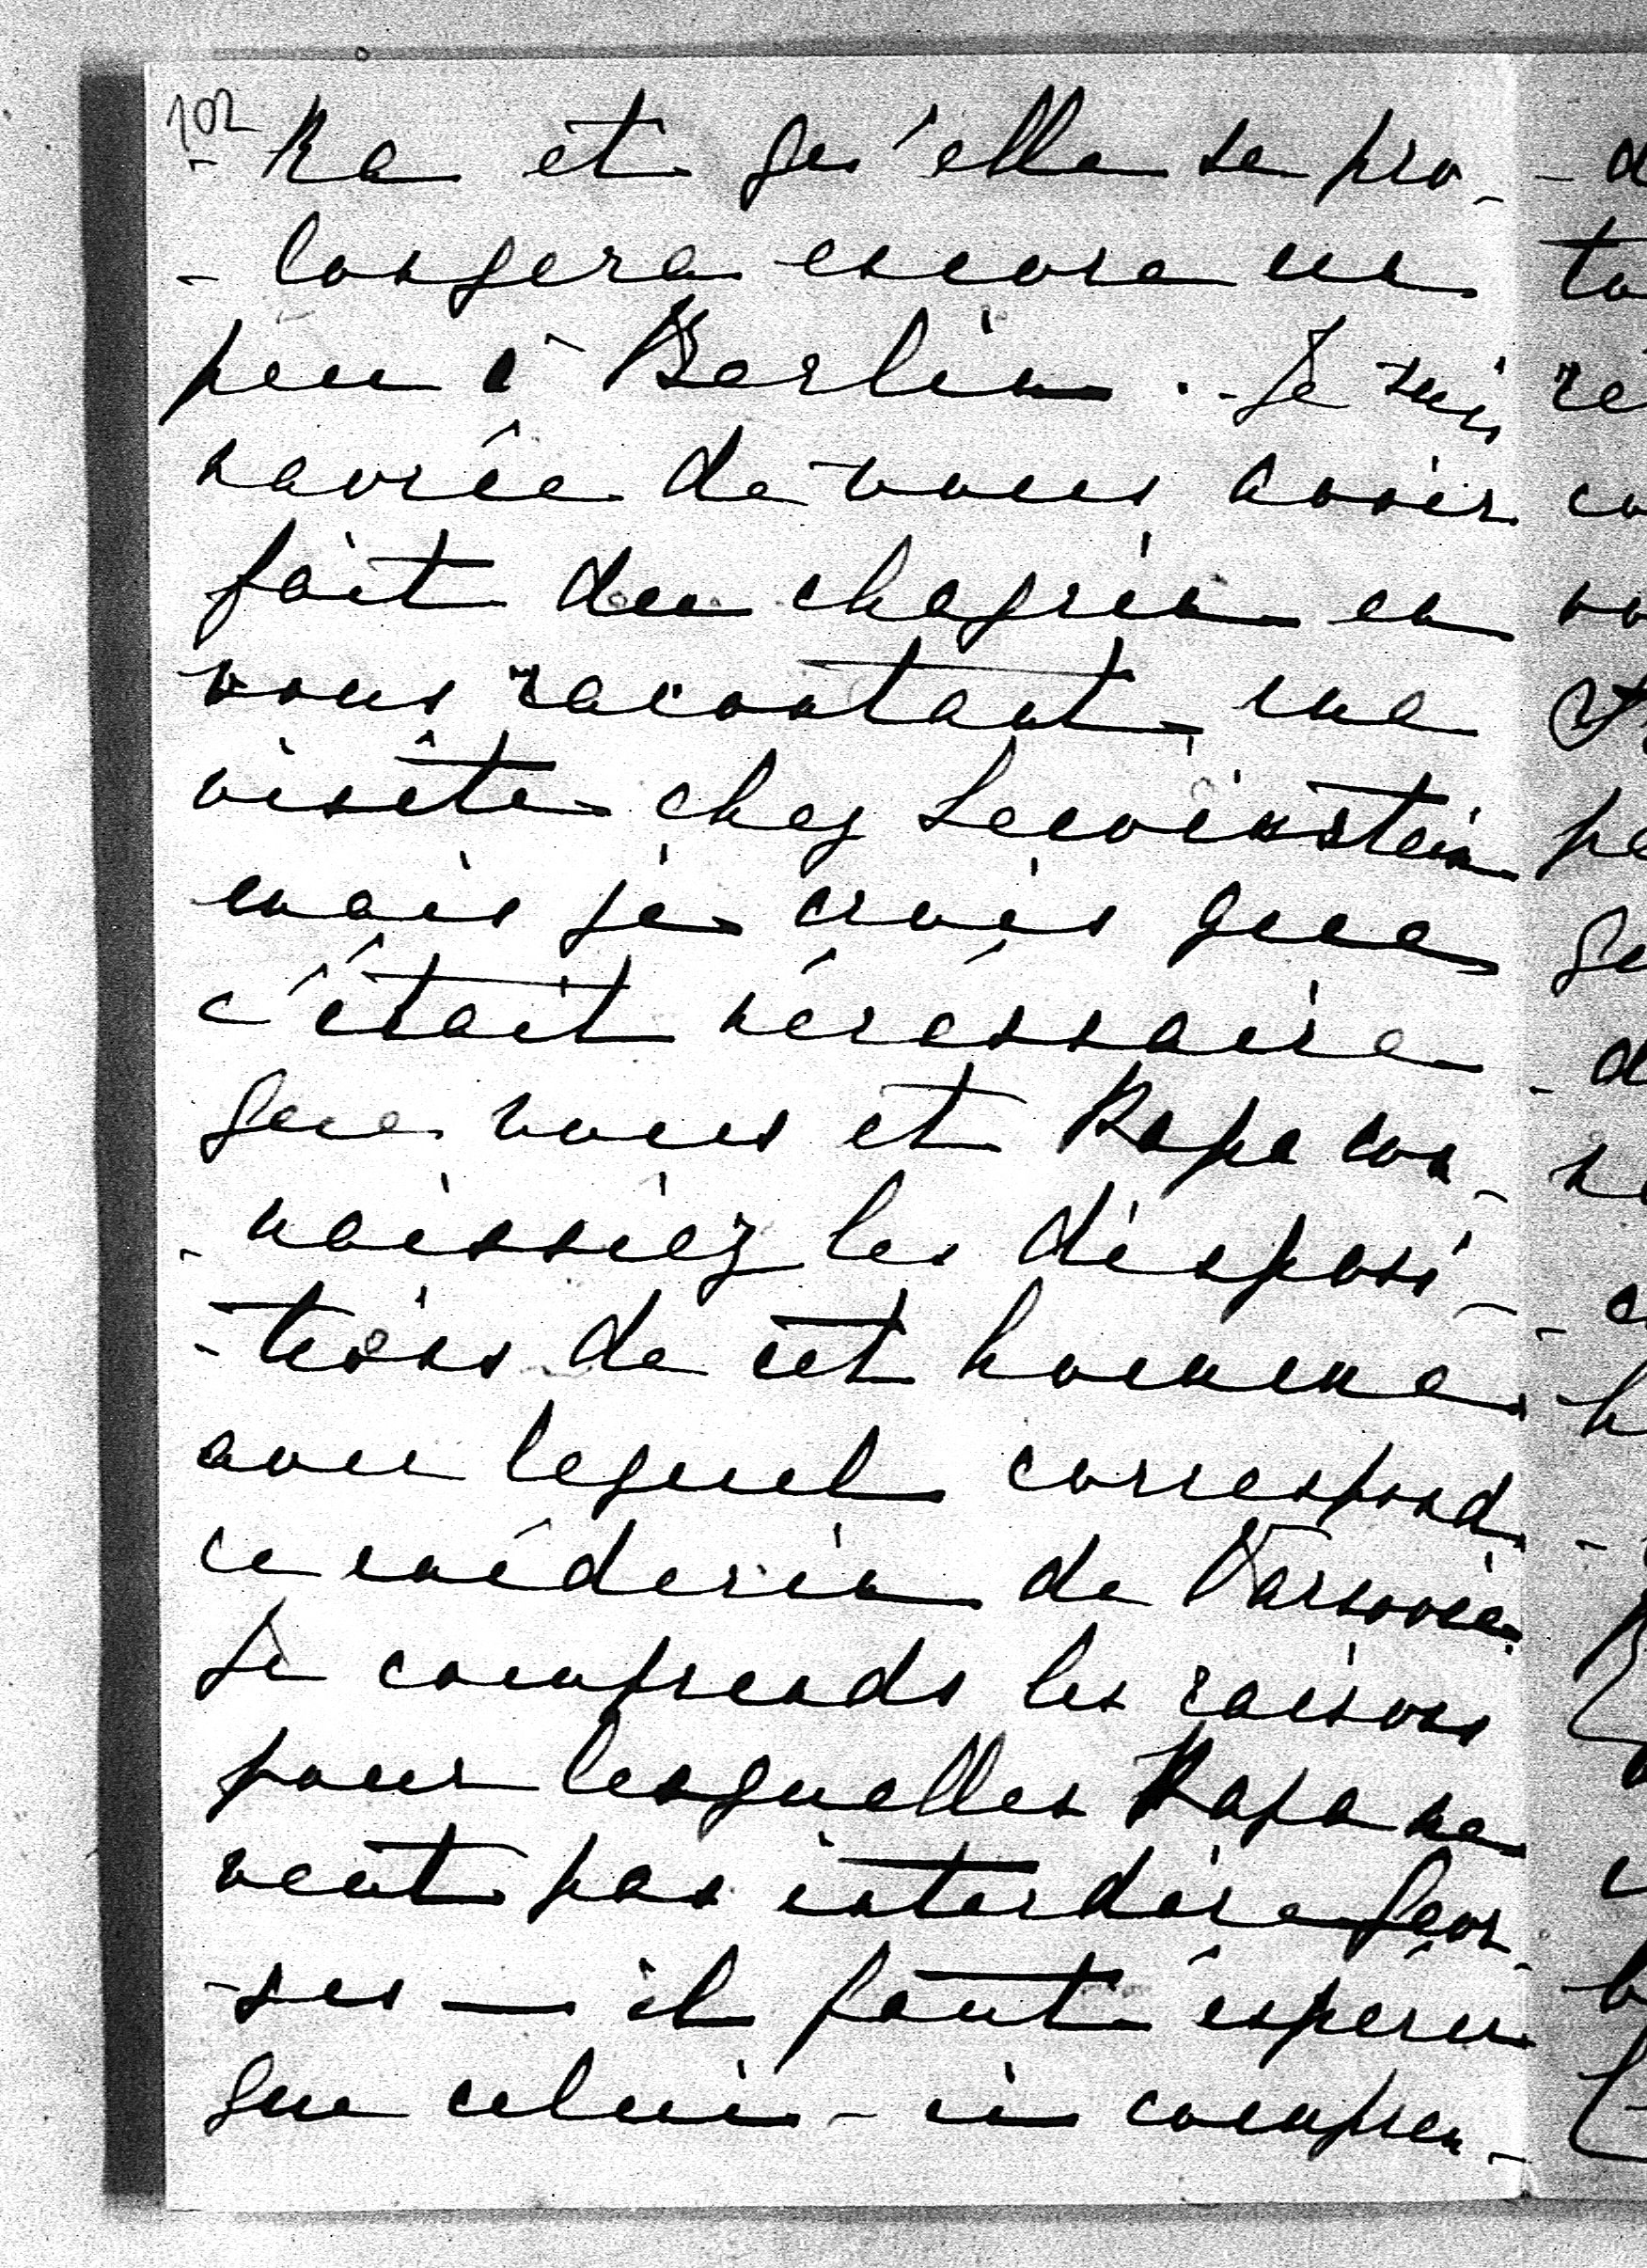 102
- ra et qu'elle se pro-
- longera encore un
peu à Berlin. - Je suis
navrée de vous avoir
fait du chagrin en
vous racontant ma
visite chez Lewinstein
mais je crois que
c'était nécessaire
que vous et Papa con-
- naissiez les disposi-
- tions de cet homme
avec lequel correspond
ce médecin de Varsovie.
Je comprends les raisons
pour lesquelles Papa ne
veut pas interdire
- ses — il faut espérer
que celui-ci compren-